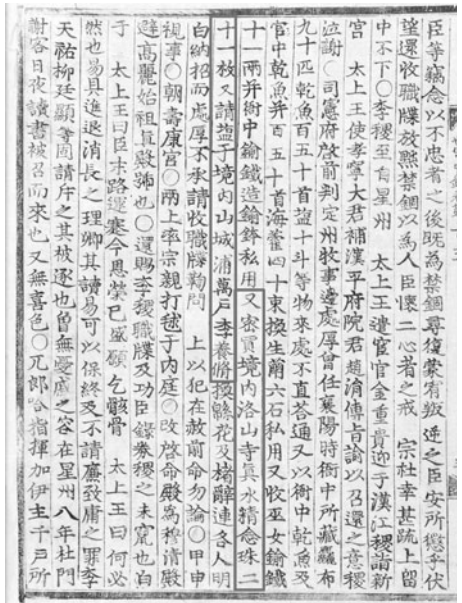 臣等竊念以不忠者之後旣爲禁錮尋復蒙宥叛逆之臣安所懲乎伏
望還收職牒放黜禁錮以爲人臣懷二心者之戒 宗社幸甚疏上留
中不下○李稷至自星州 太上王遣宦官金重貴迎于漢江稷詣新
宮 太上王使孝寧大君補漢平府院君趙涓傳旨諭以召還之意稷
泣謝○司憲府啓前判定州牧事邊處厚曾任襄陽時衙中所藏麤布
九十匹乾魚百五十首鹽十斗等物來處不直答通又以衙中乾魚及
官中乾魚幷百五十首海藿四十束換生繭六石私用又收巫女鍮鐵
十一兩幷衙中鍮鐵造鍮鉢私用又密買境內洛山寺眞水精念珠二
十一枚又請塩于境內山城浦萬戶李養脩換緜花及楮辭連各人明
白納招而處厚不承請收職牒鞫問 上以犯在赦前命勿論○甲申
視事○朝壽康宮○兩上率宗親打毬于內庭○改啓命殿爲穆淸殿
避高麗始祖眞殿號也○還賜李稷職牒及功臣錄券稷之未竄也
于 太上王曰臣末路蹇今恩榮已盛願乞骸骨 太上王曰何必
然也易具進退消長之理卿其讀易可以保終及不請廉致庸之罪李
天祐柳廷顯等固請斥之其被逐也曾無憂慼之容在星州八年杜門
謝客日夜讀書被召而來也又無喜色○兀郞哈指揮加伊主千戶所